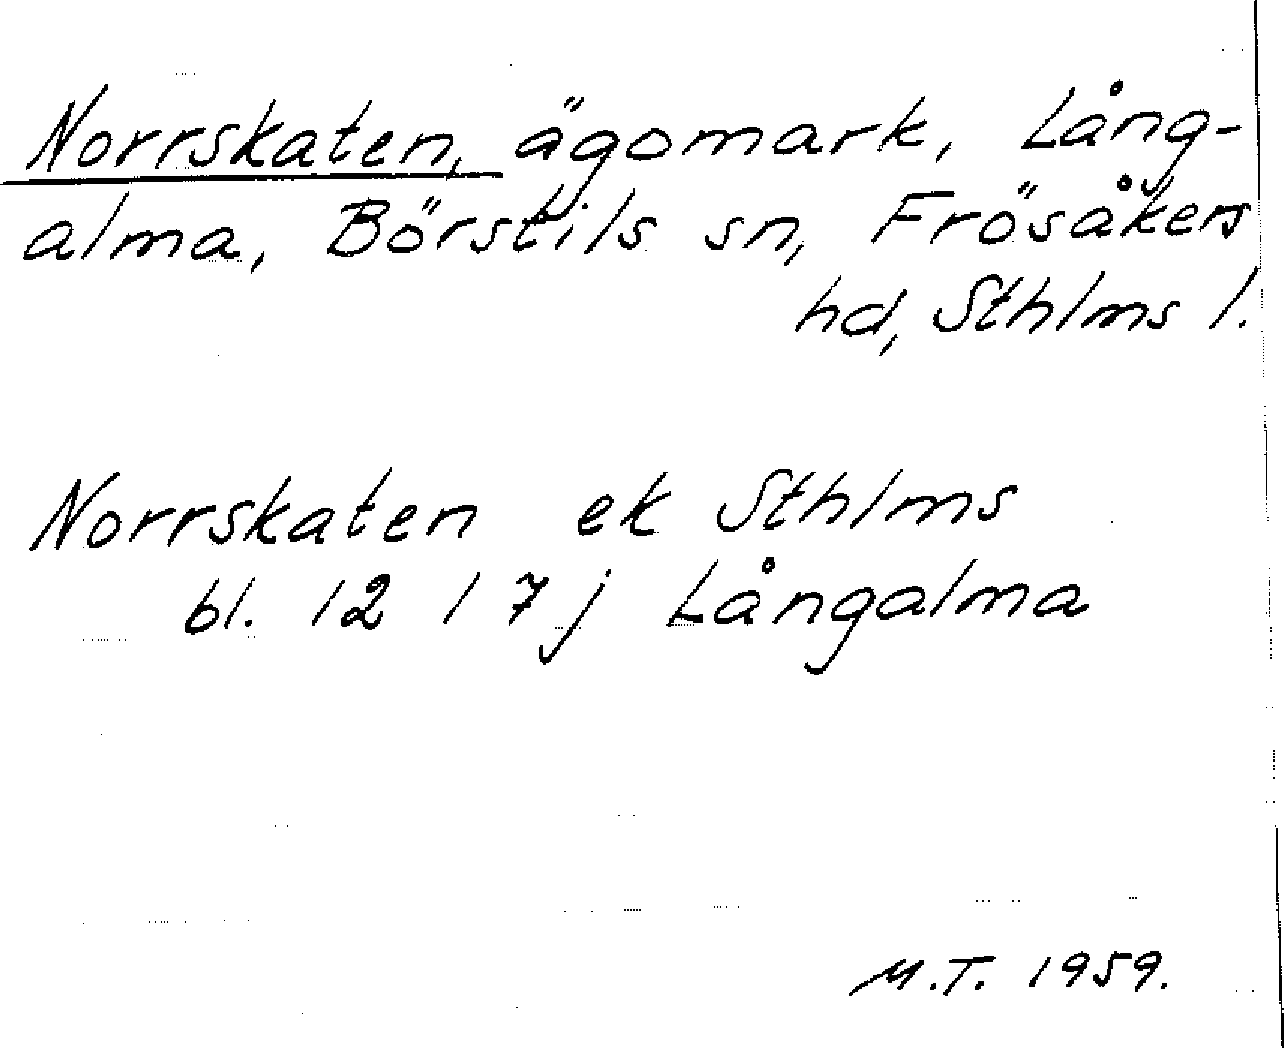 Norrskaten, ägomark, Lång-
alma, Börstils sn, Frösåkers
hd, Sthlms l.
Norrskaten ek Sthlms
bl. 12 l 7 j Långalma
M.T. 1959.